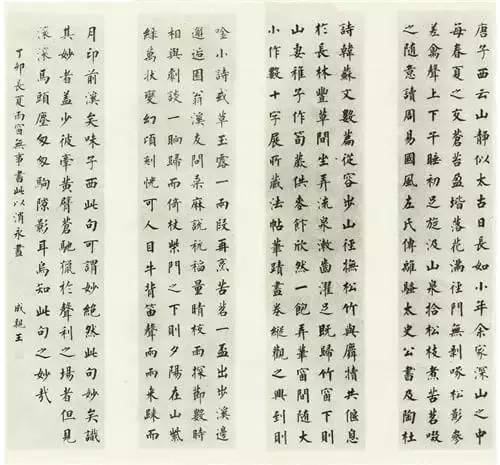 唐子西云山静似太古日長如小年余家深山之中
每春夏之交蒼苔盈堦落花滿徑門無剝啄松影參
差禽聲上下午睡初足旋汲山泉拾松枝煮苦茗啜
之隨意讀周易國風左氏傳離騷太史公書及陶杜
詩韓蘇文數篇從容步山徑撫松竹與麛犢共偃息
於長林豐草間坐弄流泉漱齒濯足既歸竹窗下則
山妻稚子作筍蕨供麥飰欣然一飽弄筆窗間隨大
小作數十字展所藏法帖筆蹟畫卷縱觀之興到則
唫小詩或草玉露一兩段再烹苦茗一盃出步溪邊
邂逅園翁溪友問桑麻說秔稻量晴校雨探節數時
相與劇談一晌歸而倚杖柴門之下則夕陽在山紫
綠萬狀變幻頃刻恍可人目牛背笛聲兩兩來歸而
月印前溪矣味子西此句可謂妙絕然此句妙矣識
其妙者蓋少彼牽黃臂蒼馳獵於聲利之場者但見
滾滾馬頭塵匆匆駒隙影耳烏知此句之妙哉
丁卯長夏雨窗無事書此以消永晝 成親王